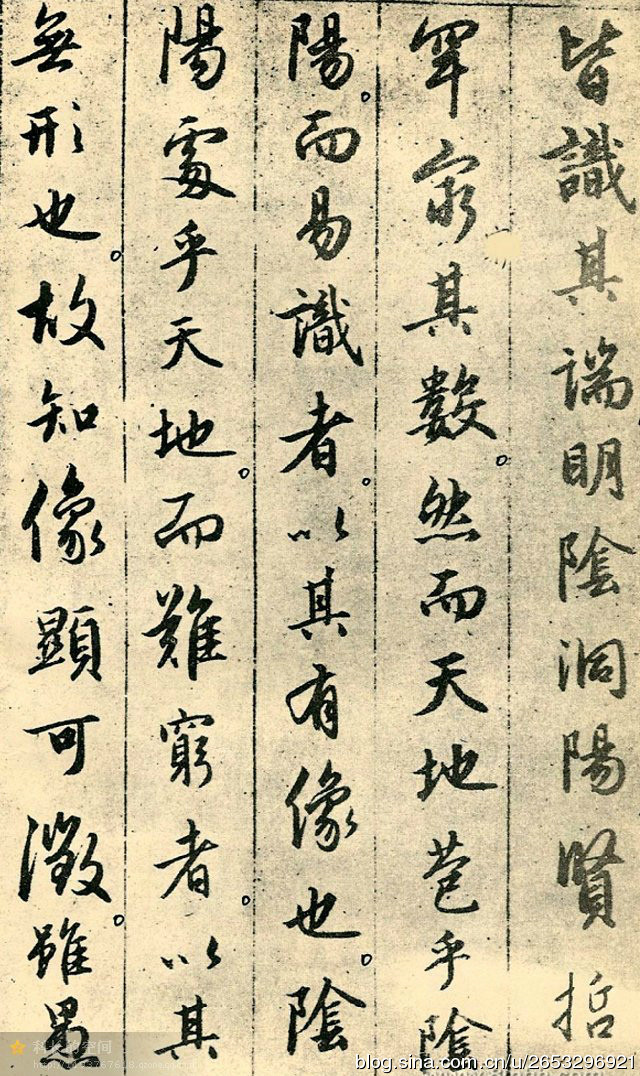 皆識其端明陰洞陽賢哲
罕窮其數。然而天地苞乎陰
陽。而易識者。以其有像也。陰
陽處乎天地。而難窮者。以其
無形也。故知像顯可徵。雖愚
blog.sina.com.cn/u/2653296921